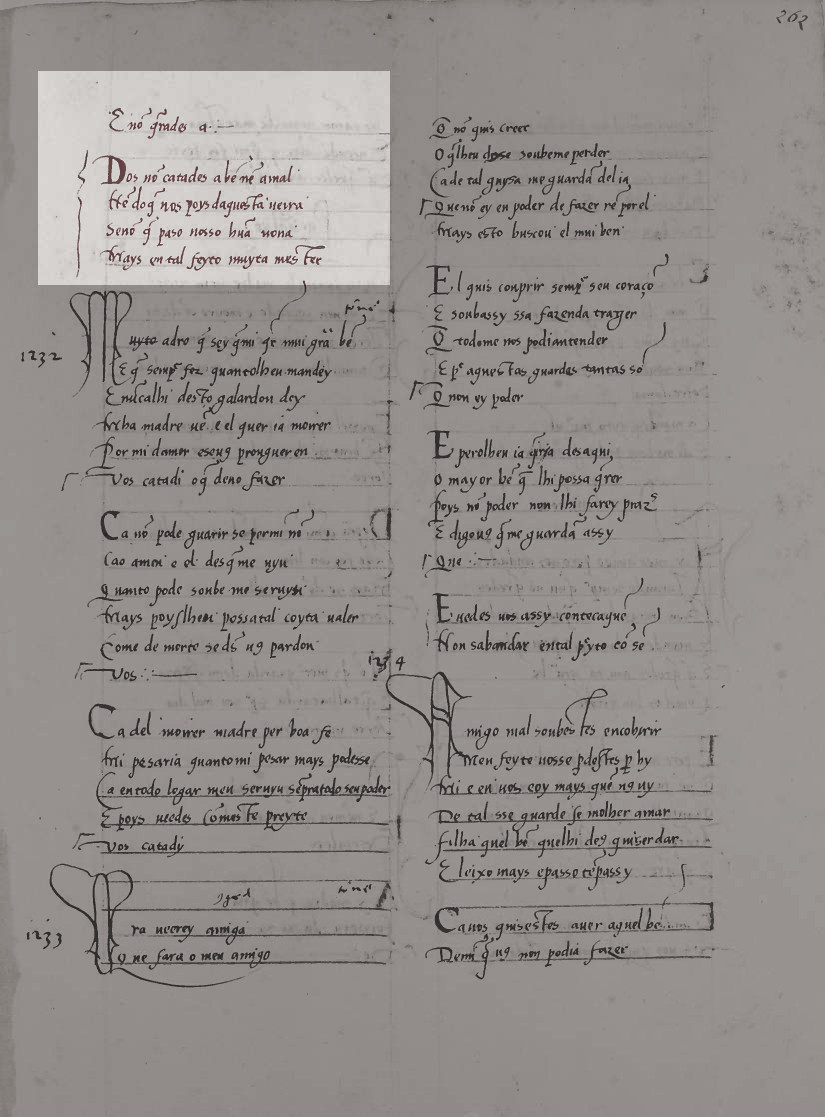 262
E nõ g̃rades a
Dos nõ catades abẽ nẽ amal
Nẽ do q̃ nos poys daquesta uerra
Senõ q̃ paso nosso hũa uona
Mays en tal feyto muyta mester
1232
Muyto adro q̃ sey q̃mi q̃r mui grã bẽ
E q̃ sempr fez quanto lheu mandey
E nũcalhi desto galardon dey
Mha madre uẽ e el quer ia morrer
Por mi damor e seuꝯ prouguer en
Vos catadi o q̃ deuo fazer
Ca nõ pode guarir se per mi nõ
Ca o amei e el des q̃ me uyu
Quanto pode soube me seruyr
Mays poys lheu possa tal coyta ualer
Come de morte se ds uꝯ pardon
Vos
Ca del morrer madre per boa fe
Mi pesaria quanto mi pesar mays podesse
Ca en todo logar meu seruyu sẽpr a todo seu poder
E poys uedes como ste preyto
Vos catady
1233
Ora ueerey amiga
Que fara o meu amigo
Q̃ nõ quis creer
O q̃ lheu dixe soubeme perder
Ca de tal guysa me guardã del ia
Que nõ ey en poder de fazer rẽ por el
Mays esto buscou el mui ben
El quis conprir sempr seu coraçõ
E soub assy ssa fazenda trager
Q̃ todome nos podiantender
E pr aquestas guardas tantas sõ
Q̃ non ey poder
E perolheu ia q̃ria des aqui
O mayor bẽ q̃ lhi possa q̃rer
Poys nõ poder non lhi farey praz
E digouꝯ q̃ me guardã assy
Que
E uedes uos assy conteca quẽ
Non sabandar en tal pryto cõ sẽ
1234
Amigo mal soubestes encobrir
Meu feyte uosse perdestes per hy
Mi e eu uos e oy mays quẽ nꝯ uy
De tal sse guarde se molher amar
Filha quel bẽ quelhi deꝯ quiser dar
E leixo mays e passo tẽp assy
Ca uos quisestes auer aquel bẽ
De mi q̃ uꝯ non podia fazer